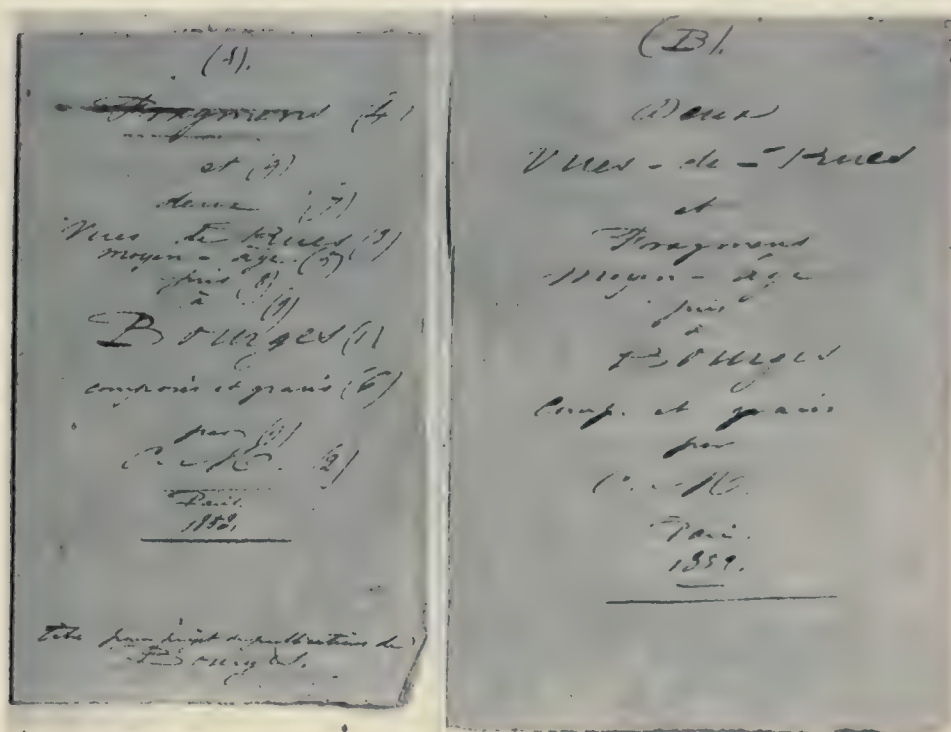 (A).
Fragmens (4)
et (9)
deux (7)
Vues de Rues (3)
moyen-âge (5)
pris (8)
à (9)
Bourges (1)
composés et gravés (6)
par
C. M. (2)
Paris.
1858.
Titre pour projet de publication de
Bourges.
(B).
Deux
Vues-de-Rues
et
Fragmens
Moyen-âge
pris
à
Bourges
Comp. et gravés
par
C. M.
Paris.
1859.